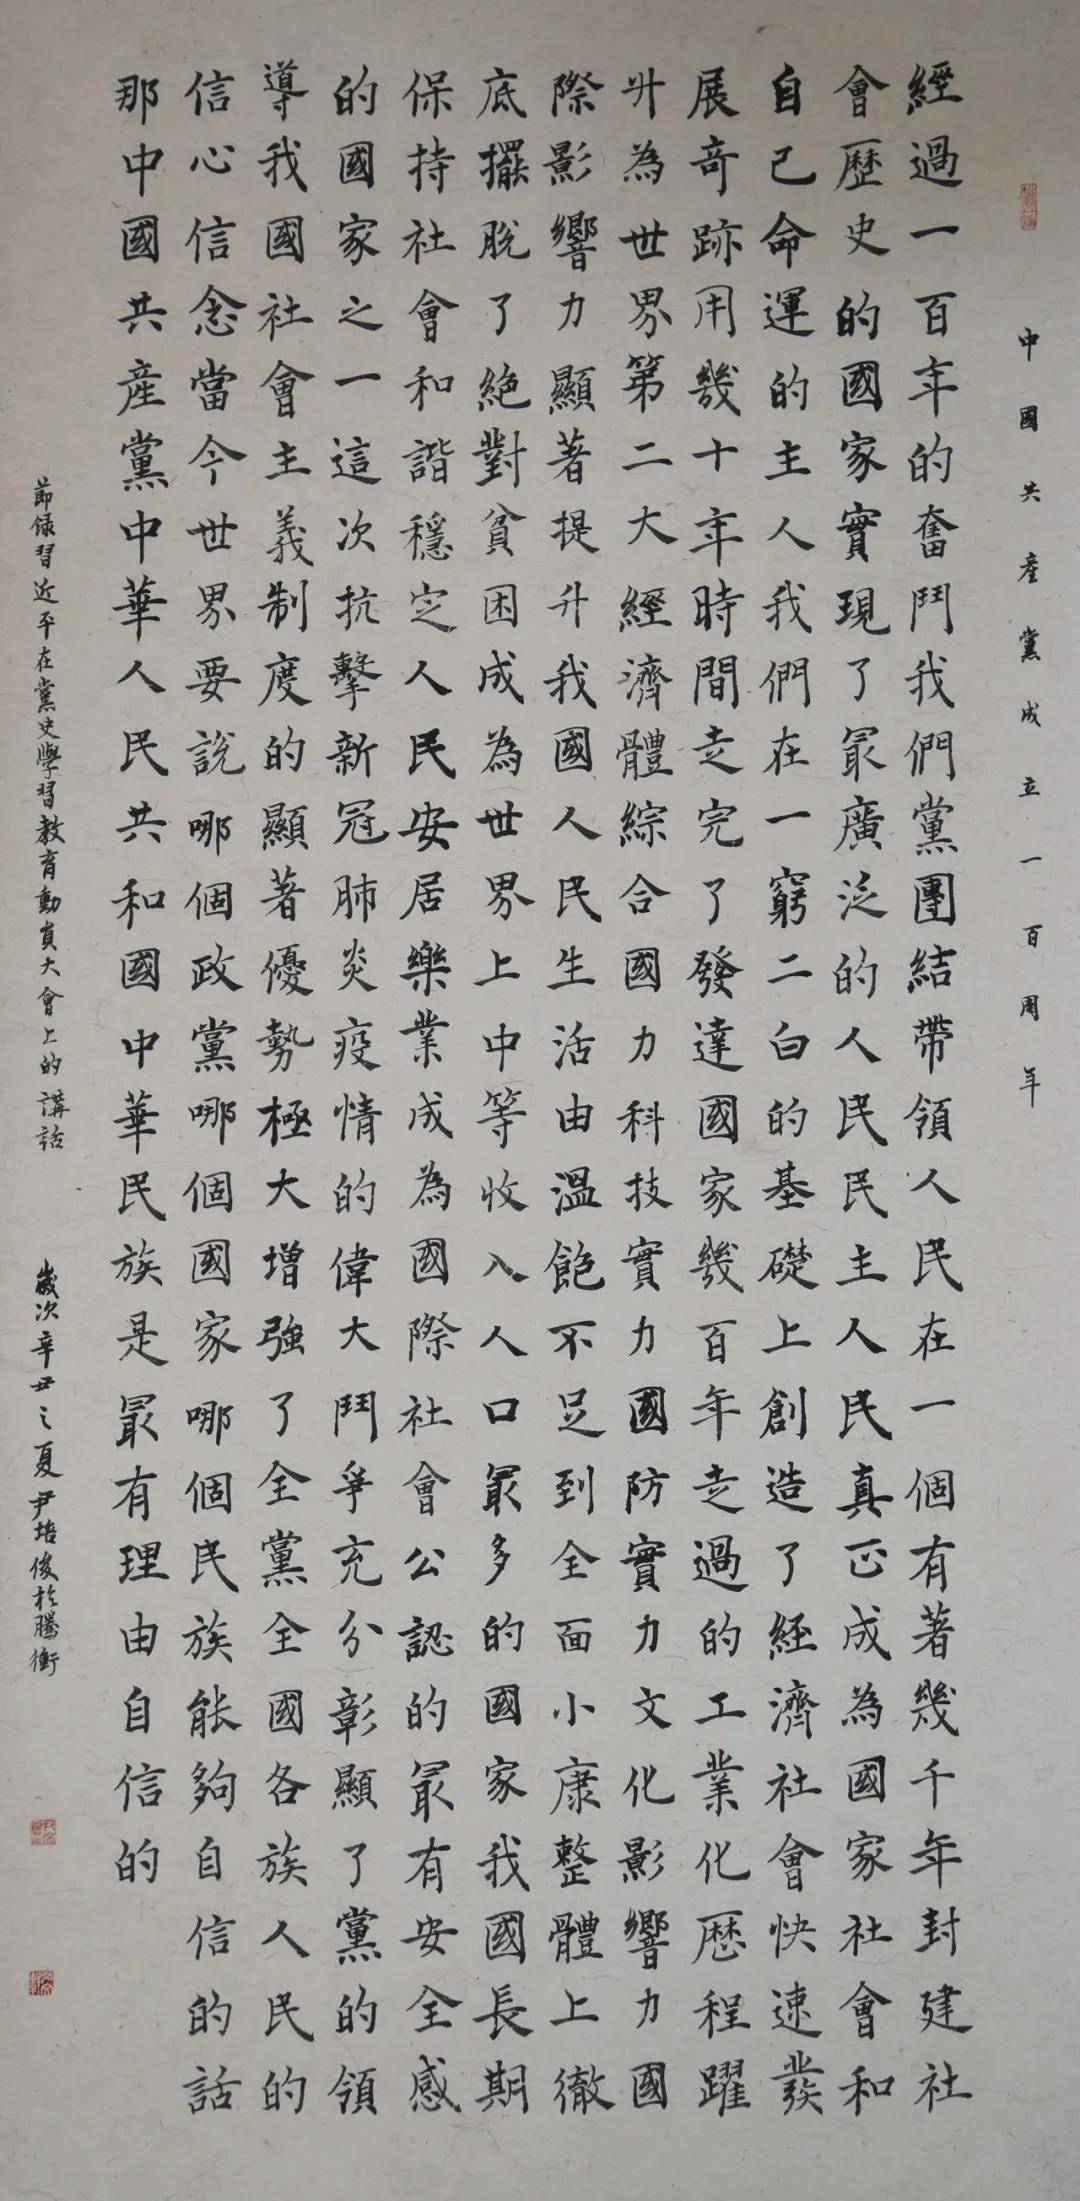 中國共產黨成立一百周年
經過一百年的奮鬥我們黨團結帶領人民在一個有著幾千年封建社
會歷史的國家實現了最廣泛的人民民主人民真正成為國家社會和
自己命運的主人我們在一窮二白的基礎上創造了經濟社會快速發
展奇跡用幾十年時間走完了發達國家幾百年走過的工業化歷程躍
升為世界第二大經濟體綜合國力科技實力國防實力文化影響力國
際影響力顯著提升我國人民生活由溫飽不足到全面小康整體上徹
底擺脫了絕對貧困成為世界上中等收入人口最多的國家我國長期
保持社會和諧穩定人民安居樂業成為國際社會公認的最有安全感
的國家之一這次抗擊新冠肺炎疫情的偉大鬥爭充分彰顯了黨的領
導我國社會主義制度的顯著優勢極大增強了全黨全國各族人民的
信心信念當今世界要說哪個政黨哪個國家哪個民族能夠自信的話
那中國共產黨中華人民共和國中華民族是最有理由自信的
節錄習近平在黨史學習教育動員大會上的講話 歲次辛丑之夏尹培俊於騰衝